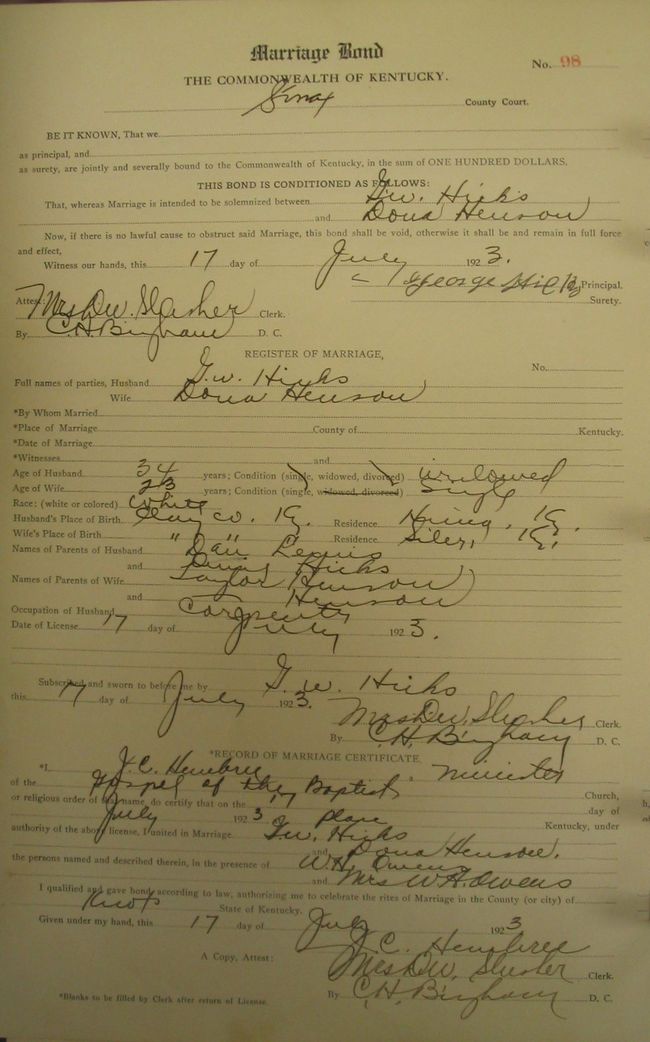 Marriage Bond
No. 98
THE COMMONWEALTH OF KENTUCKY.
Knox County Court.
BE IT KNOWN, That we
as principal, and
as surety, are jointly and severally bound to the Commonwealth of Kentucky, in the sum of ONE HUNDRED DOLLARS.
THIS BOND IS CONDITIONED AS FOLLOWS:
That, whereas Marriage is intended to be solemnized between G.W. Hicks
and Dona Henson
Now, if there is no lawful cause to obstruct said Marriage, this bond shall be void, otherwise it shall be and remain in full force
and effect,
Witness our hands, this 17 day of July 1923.
George Hicks Principal.
Attest: Surety.
Mrs D.W. Slusher Clerk.
By C.H. Bingham D. C.
REGISTER OF MARRIAGE,
No.
Full names of parties, Husband G.W. Hicks
Wife Dona Henson
*By Whom Married
*Place of Marriage County of Kentucky.
*Date of Marriage
*Witnesses and
Age of Husband 34 years; Condition (single, widowed, divorced) widowed
Age of Wife 23 years; Condition (single, widowed, divorced) Single
Race: (white or colored) White
Husband's Place of Birth Clay Co. Ky. Residence Ky.
Wife's Place of Birth " " Residence Siler, Ky.
Names of Parents of Husband Lewis
and Hicks
Names of Parents of Wife Taylor Henson
and Henson
Occupation of Husband Carpenter
Date of License 17 day of July 1923.
Subscribed and sworn to before me by G. W. Hicks
this 17 day of July 1923.
Mrs D.W. Slusher Clerk.
By C.H. Bingham D. C.
*RECORD OF MARRIAGE CERTIFICATE.
*I, J.C. Hembree, minister
of the Gospel of the Baptist Church,
or religious order of that name, do certify that on the 17 day of
July 1923 Kentucky, under
authority of the above license, I united in Marriage G.W. Hicks
and Dona Henson.
the persons named and described therein, in the presence of W.H. Owens
and Mrs W.H. Owens
I qualified and gave bond according to law, authorizing me to celebrate the rites of Marriage in the County (or city) of
Knox State of Kentucky.
Given under my hand, this 17 day of July 1923
J.C. Hembree
A Copy, Attest: Mrs D.W. Slusher Clerk.
*Blanks to be filled by Clerk after return of License. By C.H. Bingham D. C.